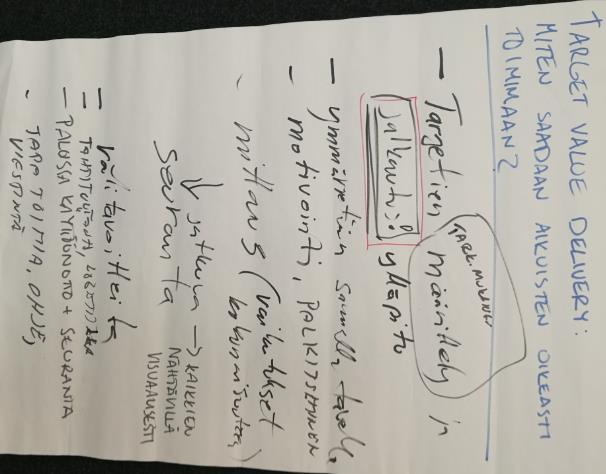 TARGET VALUE DELIVERY:
MITEN SAADAAN AIKUISTEN OIKEASTI
TOIMIMAAN?
TARK. MUKAAN
— Targetien määrittely
jalkautus! ylläpito
— ymmärretään samalla tavalla
- motivointi, PALKITSEMINEN
- mittaus (vaikutukset
kokonaisuuteen)
↓ jatkuva → KAIKKIEN
seuranta NÄHTÄVILLÄ
VISUAALISESTI
— välitavoitteita
— TAHTITUOTANTO,
— PALUSSA KÄYTTÖÖNOTTO + SEURANTA
- TAPA TOIMIA, OHJE,
VIESTINTÄ